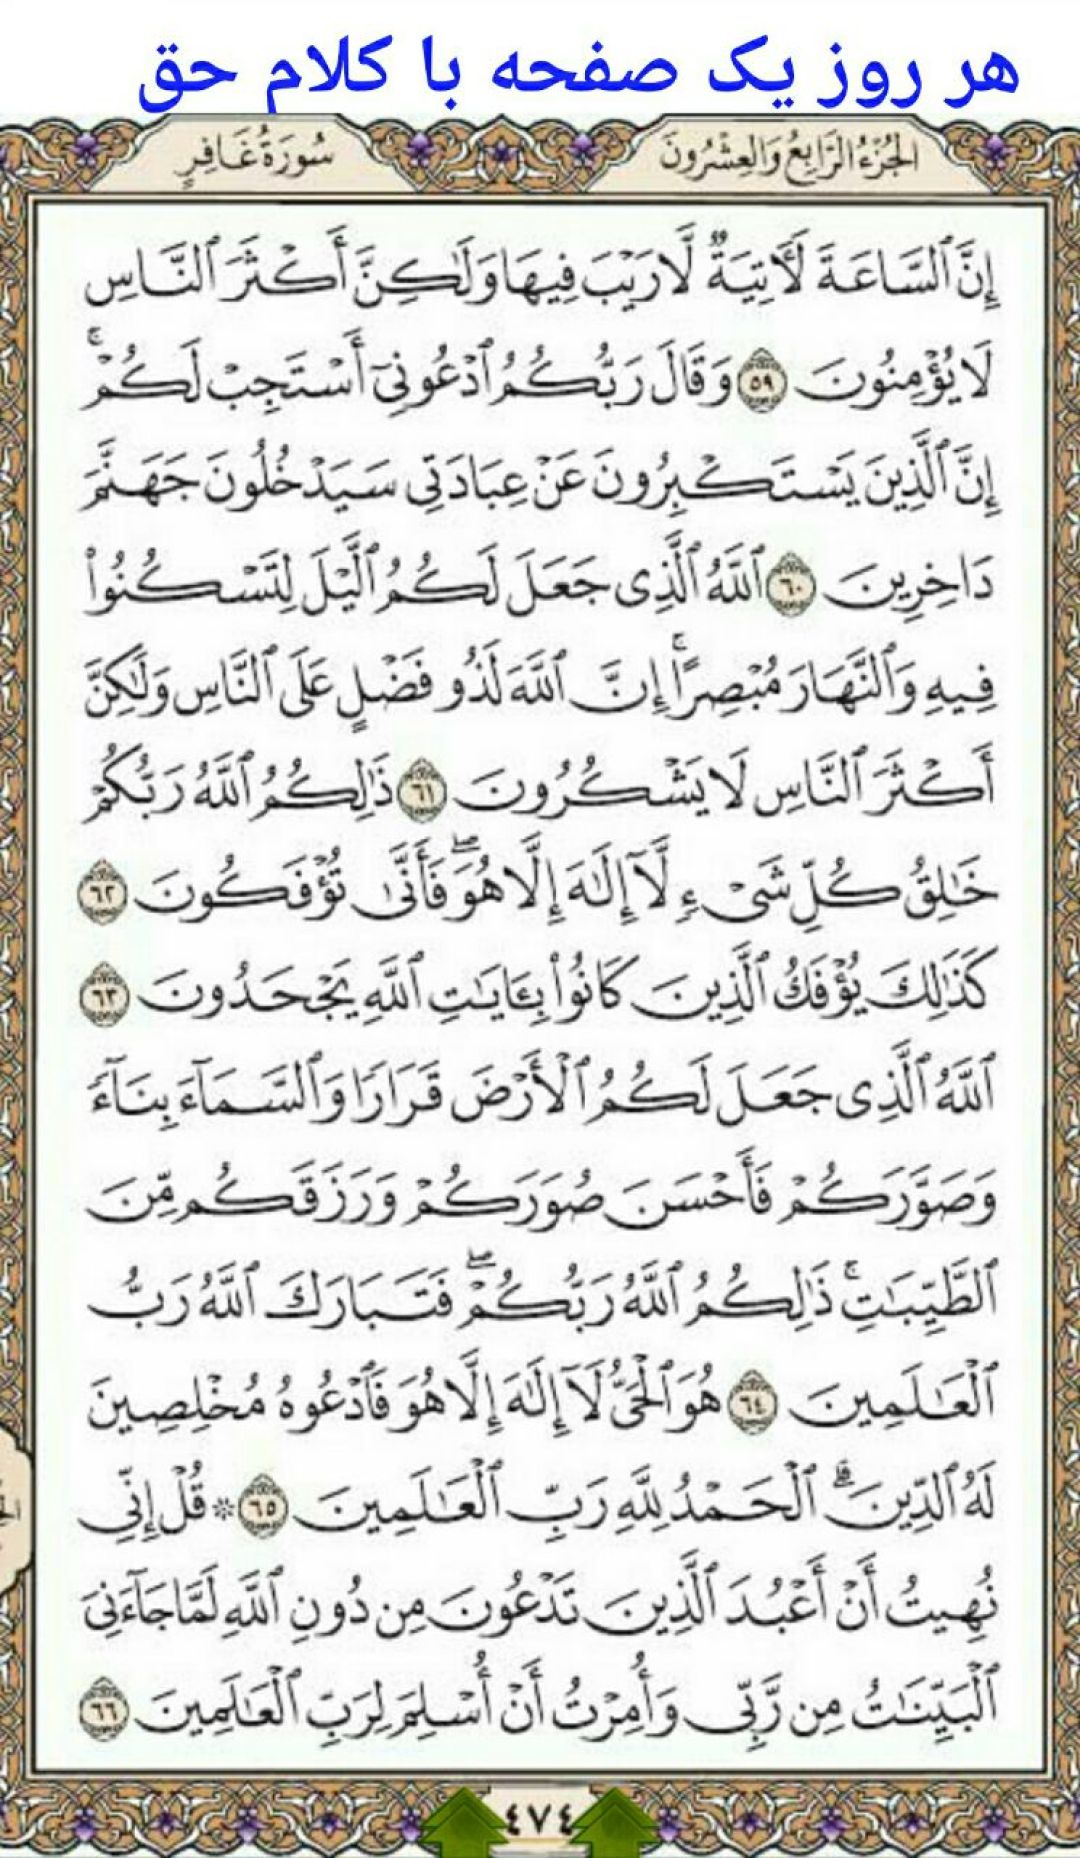 هر روز یک صفحه با کلام حق
الجُزْءُ الرَّابِعُ وَالعِشْرُونَ
سُورَةُ غَافِرٍ
إِنَّ ٱلسَّاعَةَ لَأٓتِيَةٌ لَّا رَيْبَ فِيهَا وَلَٰكِنَّ أَكْثَرَ ٱلنَّاسِ
لَا يُؤْمِنُونَ ٥٩ وَقَالَ رَبُّكُمُ ٱدْعُونِىٓ أَسْتَجِبْ لَكُمْۚ
إِنَّ ٱلَّذِينَ يَسْتَكْبِرُونَ عَنْ عِبَادَتِى سَيَدْخُلُونَ جَهَنَّمَ
دَاخِرِينَ ٦٠ ٱللَّهُ ٱلَّذِى جَعَلَ لَكُمُ ٱلَّيْلَ لِتَسْكُنُوا۟
فِيهِ وَٱلنَّهَارَ مُبْصِرًاۚ إِنَّ ٱللَّهَ لَذُو فَضْلٍ عَلَى ٱلنَّاسِ وَلَٰكِنَّ
أَكْثَرَ ٱلنَّاسِ لَا يَشْكُرُونَ ٦١ ذَٰلِكُمُ ٱللَّهُ رَبُّكُمْ
خَٰلِقُ كُلِّ شَىْءٍ لَّآ إِلَٰهَ إِلَّا هُوَۖ فَأَنَّىٰ تُؤْفَكُونَ ٦٢
كَذَٰلِكَ يُؤْفَكُ ٱلَّذِينَ كَانُوا۟ بِـَٔايَٰتِ ٱللَّهِ يَجْحَدُونَ ٦٣
ٱللَّهُ ٱلَّذِى جَعَلَ لَكُمُ ٱلْأَرْضَ قَرَارًا وَٱلسَّمَآءَ بِنَآءً
وَصَوَّرَكُمْ فَأَحْسَنَ صُوَرَكُمْ وَرَزَقَكُم مِّنَ
ٱلطَّيِّبَٰتِۚ ذَٰلِكُمُ ٱللَّهُ رَبُّكُمْۖ فَتَبَارَكَ ٱللَّهُ رَبُّ
ٱلْعَٰلَمِينَ ٦٤ هُوَ ٱلْحَىُّ لَآ إِلَٰهَ إِلَّا هُوَ فَٱدْعُوهُ مُخْلِصِينَ
لَهُ ٱلدِّينَۗ ٱلْحَمْدُ لِلَّهِ رَبِّ ٱلْعَٰلَمِينَ ٦٥ ۞ قُلْ إِنِّى
نُهِيتُ أَنْ أَعْبُدَ ٱلَّذِينَ تَدْعُونَ مِن دُونِ ٱللَّهِ لَمَّا جَآءَنِىَ
ٱلْبَيِّنَٰتُ مِن رَّبِّى وَأُمِرْتُ أَنْ أُسْلِمَ لِرَبِّ ٱلْعَٰلَمِينَ ٦٦
٤٧٤